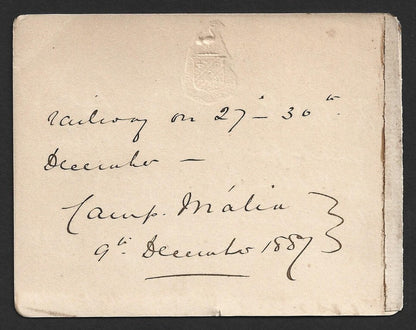 railway on 27th - 30th
December -
Camp. Mália
9th December 1887